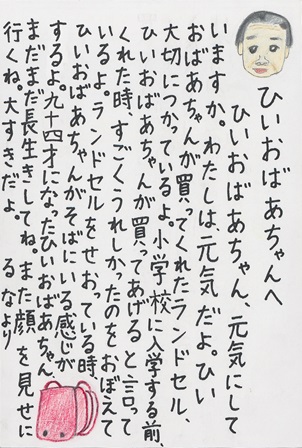 ひいおばあちゃんへ
ひいおばあちゃん、元気にして
いますか。わたしは、元気だよ。ひい
おばあちゃんが買ってくれたランドセル、
大切につかっているよ。小学校に入学する前、
ひいおばあちゃんが買ってあげると言って
くれた時、すごくうれしかったのをおぼえて
いるよ。ランドセルをせおっている時、
ひいおばあちゃんがそばにいる感じが
するよ。九十四才になったひいおばあちゃん、
まだまだ長生きしてね。また顔を見せに
行くね。大すきだよ。 るなより